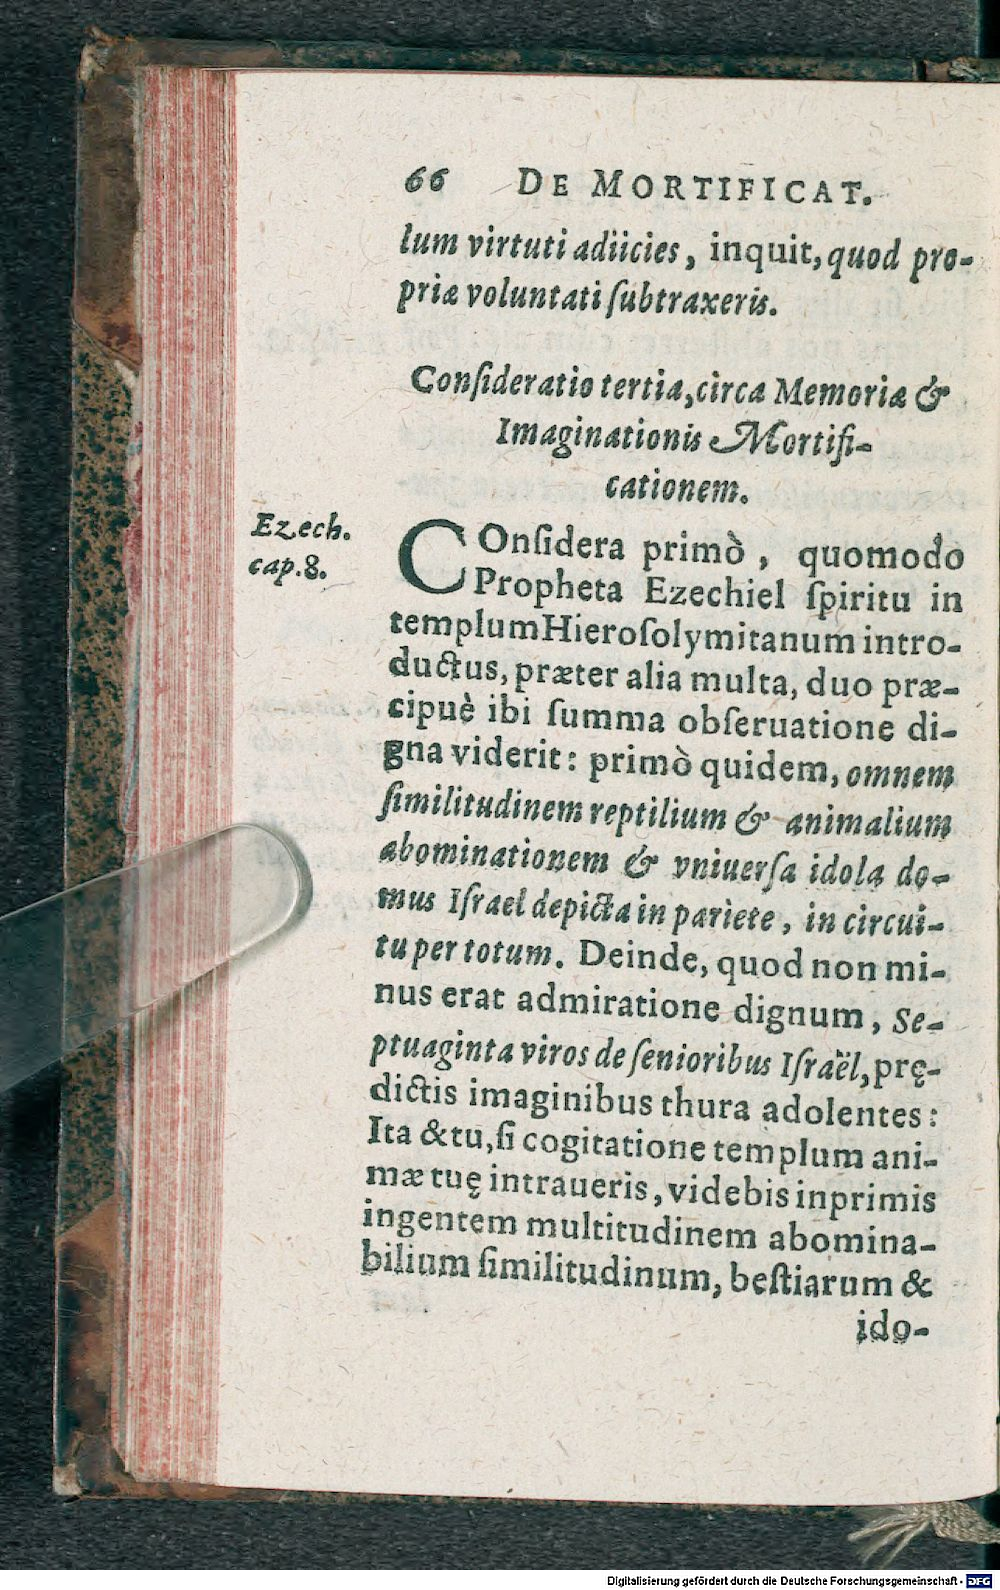 66 DE MORTIFICAT.
lum virtuti adiicies, inquit, quod pro-
priæ voluntati ſubtraxeris.
Conſideratio tertia, circa Memoriæ &
Imaginationis Mortifi-
cationem.
Ezech.
cap. 8.
COnſidera primò, quomodo
Propheta Ezechiel ſpiritu in
templum Hieroſolymitanum intro-
ductus, præter alia multa, duo præ-
cipuè ibi ſumma obſeruatione di-
gna viderit: primò quidem, omnem
ſimilitudinem reptilium & animalium
abominationem & vniuerſa idola do-
mus Iſrael depicta in pariete, in circui-
tu per totum. Deinde, quod non mi-
nus erat admiratione dignum, Se-
ptuaginta viros de ſenioribus Iſraël, prę-
dictis imaginibus thura adolentes:
Ita & tu, ſi cogitatione templum ani-
mæ tuę intraueris, videbis inprimis
ingentem multitudinem abomina-
bilium ſimilitudinum, beſtiarum &
ido-
Digitalisierung gefördert durch die Deutsche Forschungsgemeinschaft - DFG